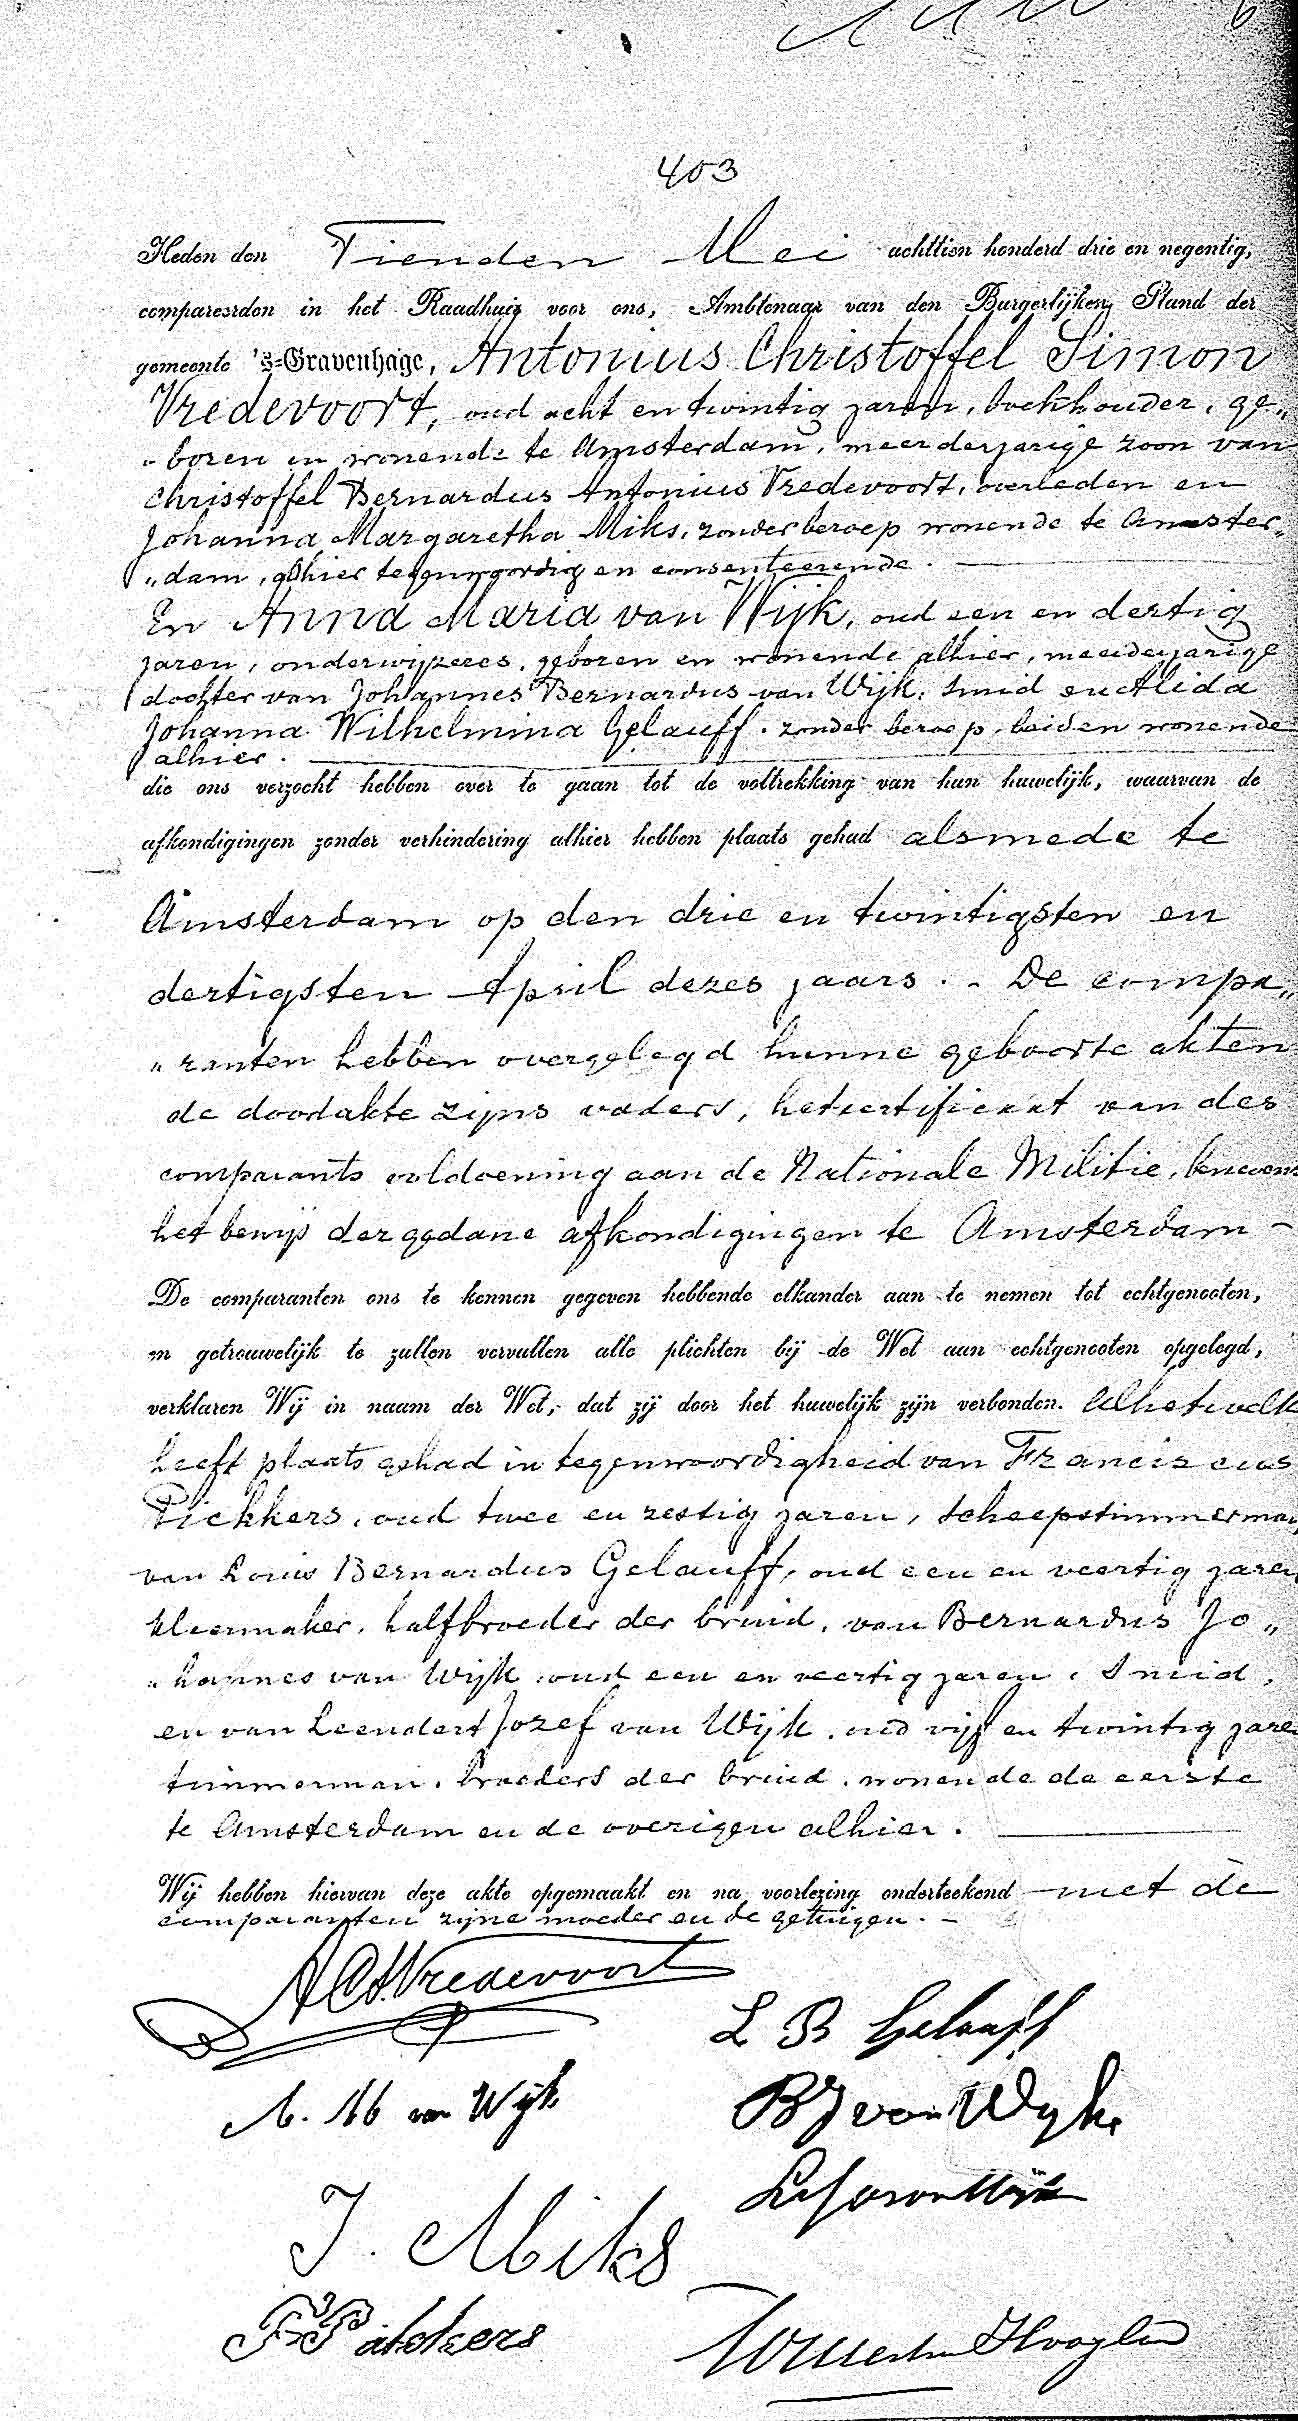 403
Heden den Tienden Mei achttien honderd drie en negentig,
compareerden in het Raadhuis voor ons, Ambtenaar van den Burgerlijken Stand der
gemeente 's-Gravenhage, Antonius Christoffel Simon
Vredevoort, oud acht en twintig jaren, boekhouder, ge„
„boren en wonende te Amsterdam, meerderjarige zoon van
Christoffel Bernardus Antonius Vredevoort, overleden en
Johanna Margaretha Miks, zonder beroep wonende te Amster„
„dam, alhier tegenwoordig en consenteerende.
En Anna Maria van Wijk, oud een en dertig
jaren, onderwijzeres, geboren en wonende alhier, meerderjarige
dochter van Johannes Bernardus van Wijk, smid en Alida
Johanna Wilhelmina Gelauff, zonder beroep, beiden wonende
alhier.
die ons verzocht hebben over te gaan tot de voltrekking van hun huwelijk, waarvan de
afkondigingen zonder verhindering alhier hebben plaats gehad alsmede te
Amsterdam op den drie en twintigsten en
dertigsten April dezes jaars. - De compa„
„ranten hebben overgelegd hunne geboorte akten
de doodakte zijns vaders, het certificaat van des
comparants voldoening aan de Nationale Militie, benevens
het bewijs der gedane afkondigingen te Amsterdam -
De comparanten ons te kennen gegeven hebbende elkander aan te nemen tot echtgenooten,
en getrouwelijk te zullen vervullen alle plichten bij de Wet aan echtgenooten opgelegd,
verklaren Wij in naam der Wet, dat zij door het huwelijk zijn verbonden. Al hetwelk
heeft plaats gehad in tegenwoordigheid van Franciscus
Pickkers, oud twee en zestig jaren, scheepstimmerman,
van Louis Bernardus Gelauff, oud een en veertig jaren
kleermaker, halfbroeder der bruid, van Bernardus Jo„
„hannes van Wijk oud een en veertig jaren, smid,
en van Leendert Jozef van Wijk, oud vijf en twintig jaren
timmerman, broeders der bruid, wonende de eerste
te Amsterdam en de overigen alhier.
Wij hebben hiervan deze akte opgemaakt en na voorlezing onderteekend met de
comparanten zijne moeder en de getuigen. -
A C S Vredevoort
L B Gelauff
A. M van Wijk
B J van Wijk
J. Miks